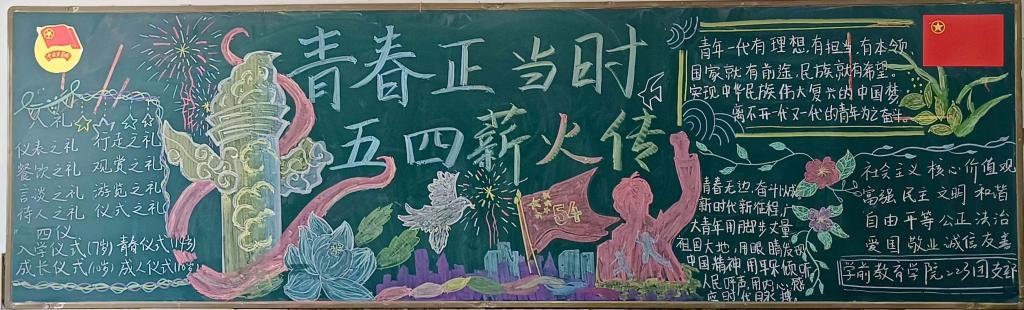 青春正当时
五四薪火传
八礼
仪表之礼 行走之礼
餐饮之礼 观赏之礼
言谈之礼 游览之礼
待人之礼 仪式之礼
四仪
入学仪式(7岁)青春仪式(14岁)
成长仪式(10岁)成人仪式(18岁)
54
青春无边,奋斗以成
新时代新征程,广
大青年用脚步丈量
祖国大地,用眼睛发现
中国精神,用耳朵倾听
人民呼声,用内心感
应时代脉搏
青年一代有理想,有担当,有本领,
国家就有前途,民族就有希望。
实现中华民族伟大复兴的中国梦,
离不开一代又一代的青年为之奋斗。
社会主义核心价值观
富强 民主 文明 和谐
自由 平等 公正 法治
爱国 敬业 诚信 友善
学前教育学院223团支部